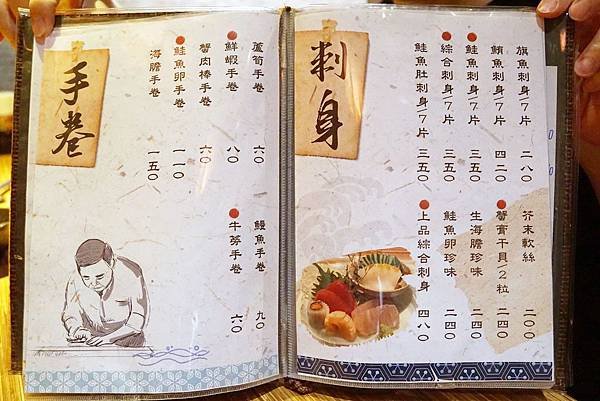 刺身
旗魚刺身/7片 二八〇
鮪魚刺身/7片 四二〇
鮭魚刺身/7片 三五〇
綜合刺身/7片 三五〇
鮭魚肚刺身/7片 三五〇
芥末軟絲 二〇〇
蟹膏干貝/2粒 二四〇
生海膽珍味 二四〇
鮭魚卵珍味 二四〇
上品綜合刺身 四八〇
手卷
蘆筍手卷 六〇
鮮蝦手卷 八〇
蟹肉棒手卷 六〇
鮭魚卵手卷 一一〇
海膽手卷 一五〇
鰻魚手卷 九〇
牛蒡手卷 六〇